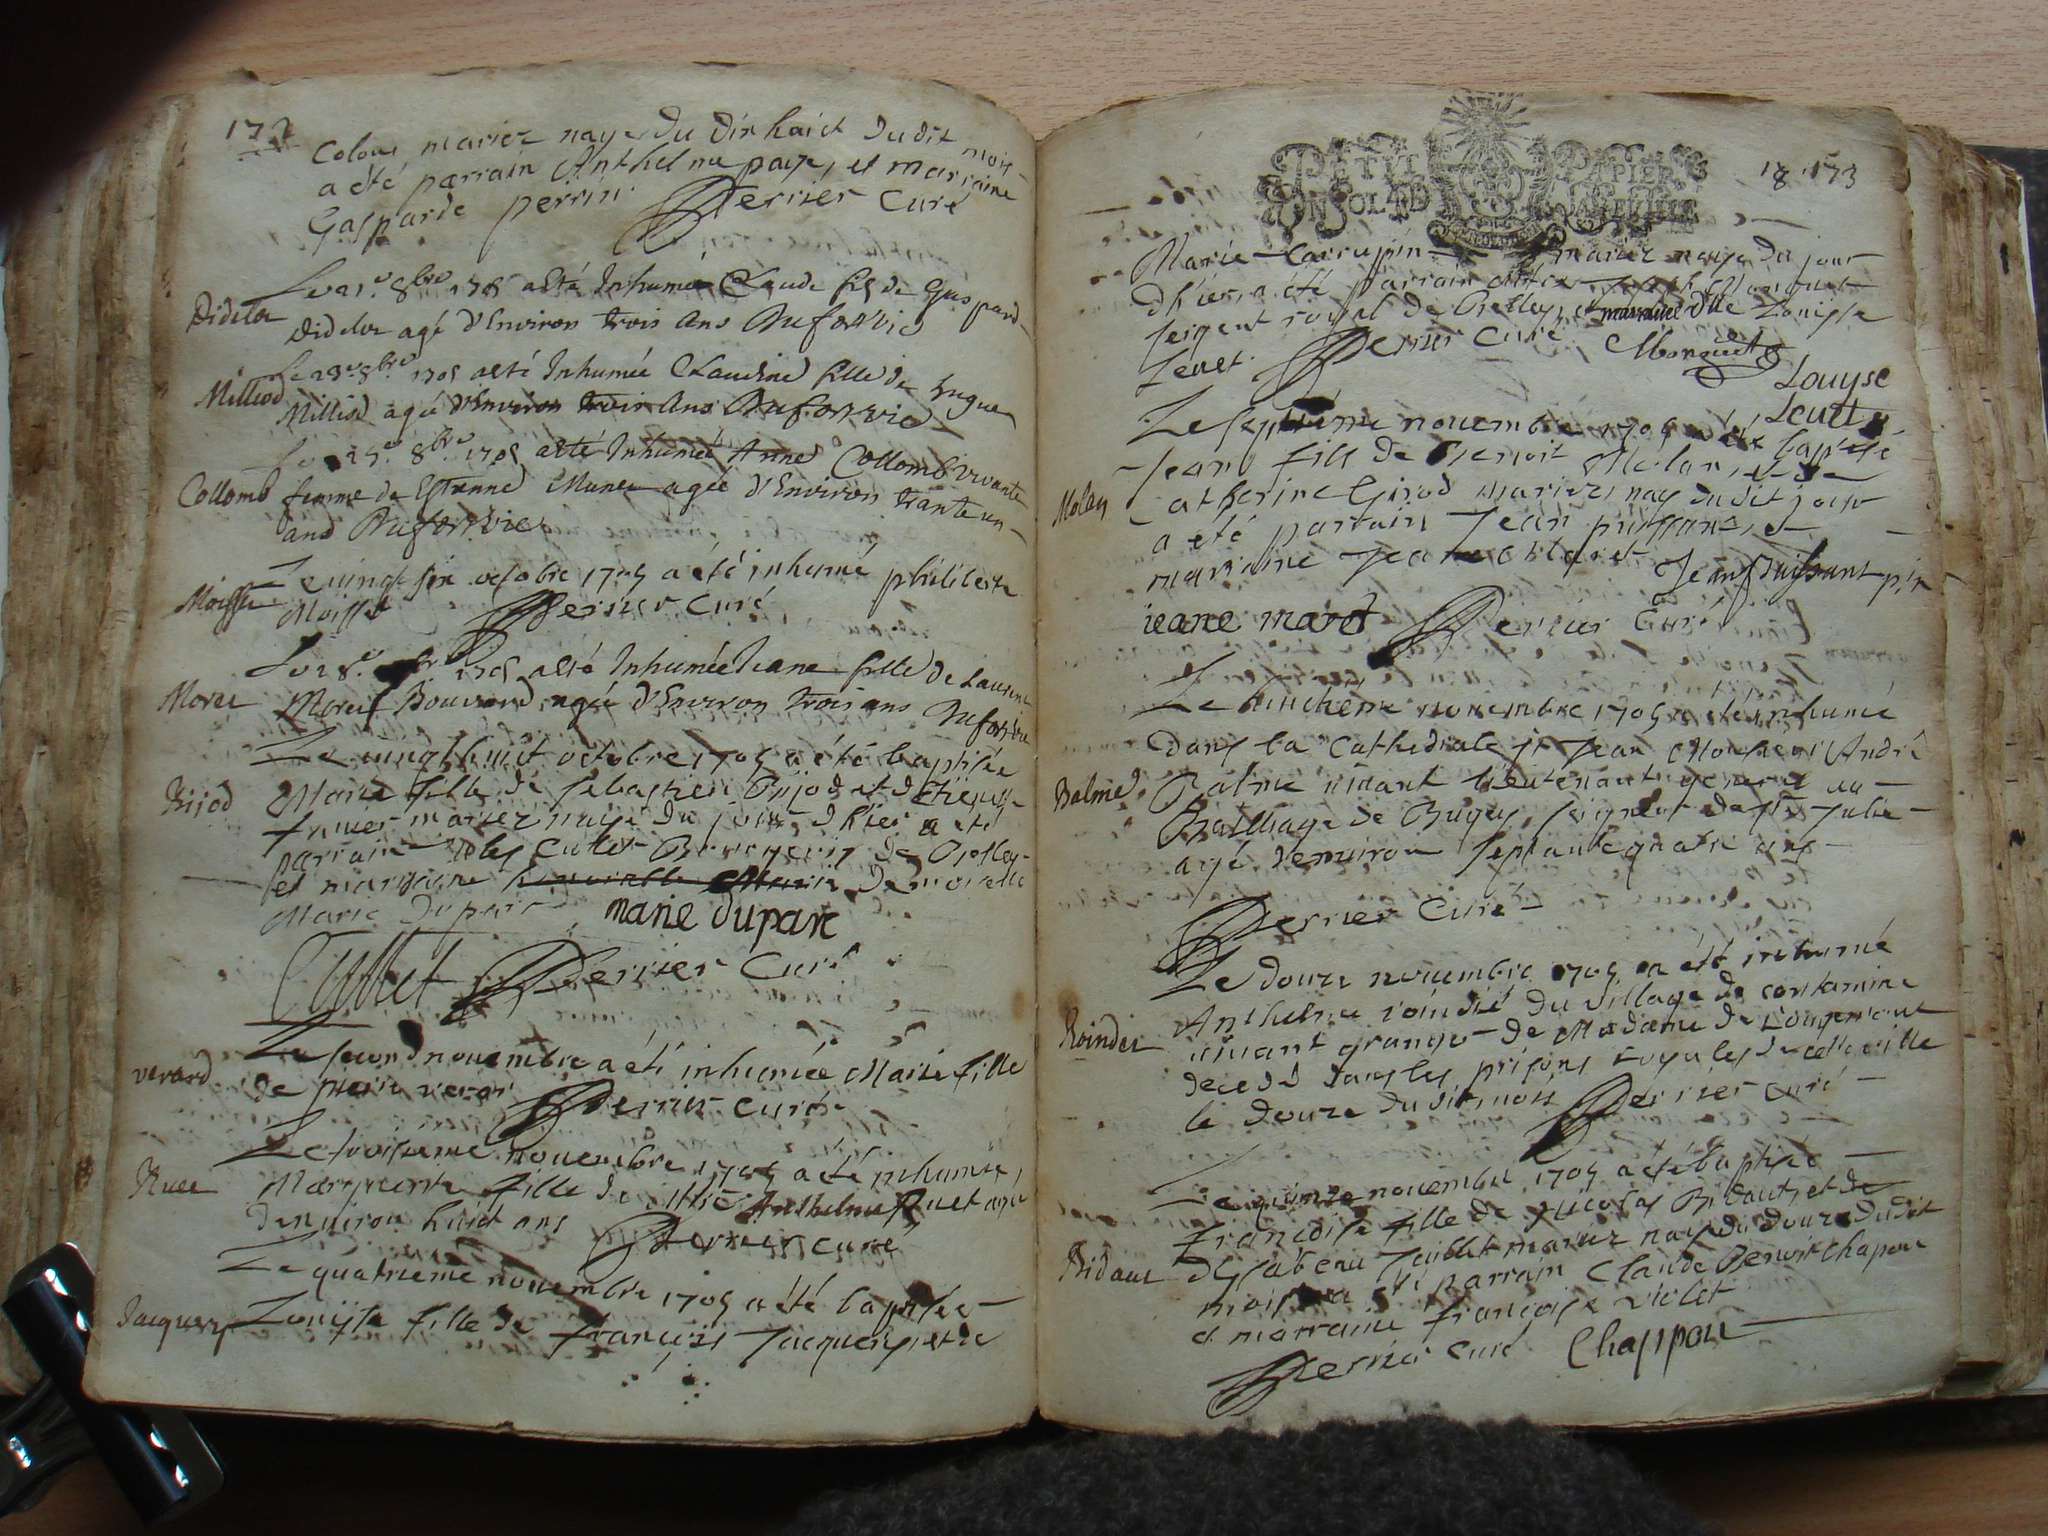 172
Colou mariez naye du dix huict dudit mois
a été parrain Anthelme paye, et marraine
Gasparde perrin Perrier Curé
Le 21e 8bre 1705 a esté Inhumé Claude fils de Gaspard
Didelor
Didelor agé d'Environ trois ans
Le 23e 8bre 1705 a esté Inhumée Claudine fille de hugue
Milliod
Milliod agée d'Environ trois Ans
Le 25e 8bre 1705 a esté Inhumée Anne Collomb vivante
Collomb femme de Estienne Munet agée d'Environ trante un
ans
Le vingt six octobre 1705 a été inhumé philiberte
Moisse
Moisset Perrier Curé
Le 28e 1705 a esté Inhumée Jeane fille de Laurent
Moret
Moret Bouvard agée d'Environ trois ans
Le vingt huit octobre 1705 a été baptisée
Bijod
Marie fille de sebastien Bijod et d'Etiennette
mariez naye du jour d'hier a été
parrain Cullet Bourgeois de Belley
et marraine honorable Marie Demoiselle
Marie Duparc marie duparc
Cullet Perrier Curé
Le second novembre a été inhumée Marie fille
verard
de pierre verar Perrier curé
Le troisieme novembre 1705 a été inhumée
Ruet
Marguerite fille de Anthelme Ruet agée
denviron huict ans Perrier curé
Le quatrieme novembre 1705 a été baptisée
Jacquemet
Louyse fille de françois Jacquemet et de
PETIT PAPIER
18 173
Marie Carrupin mariez naye du jour
d'hier a été parrain
sergent royal de Belley, et marraine dlle Louyse
Leuet Perrier curé Monguet
Louyse
Leuet
Le septieme novembre 1705 a été baptisé
Jean fils de Benoit Molan, et de
Molan
Catherine Girod mariez nay dudit jour
a été parrain Jean puissant, et
marraine Jeane Jean Puissant
ieane maret Perrier Curé
Le huictieme novembre 1705 a été inhumé
dans la Cathedrale st Jean Monsieur André
Balme
Balme vivant lieutenant general au
Bailliage de Bugey, seigneur de ste Julie
agé denviron septante quatre ans
Perrier Curé
Le douze novembre 1705 a été inhumé
Anthelme roindet du village de contamine
Roindet
vivant granger de Madame de
decedé dans les prisons royales de cette ville
le douze dudit mois Perrier Curé
Le quinze novembre 1705 a été baptisée
françoise fille de nicolas Bidaut, et de
Bidaut
dysabeau Juillet mariez naye du douze dudit
mois a été parrain Claude Benoit Chapou
et marraine françoise violet
Perrier Curé Chappou